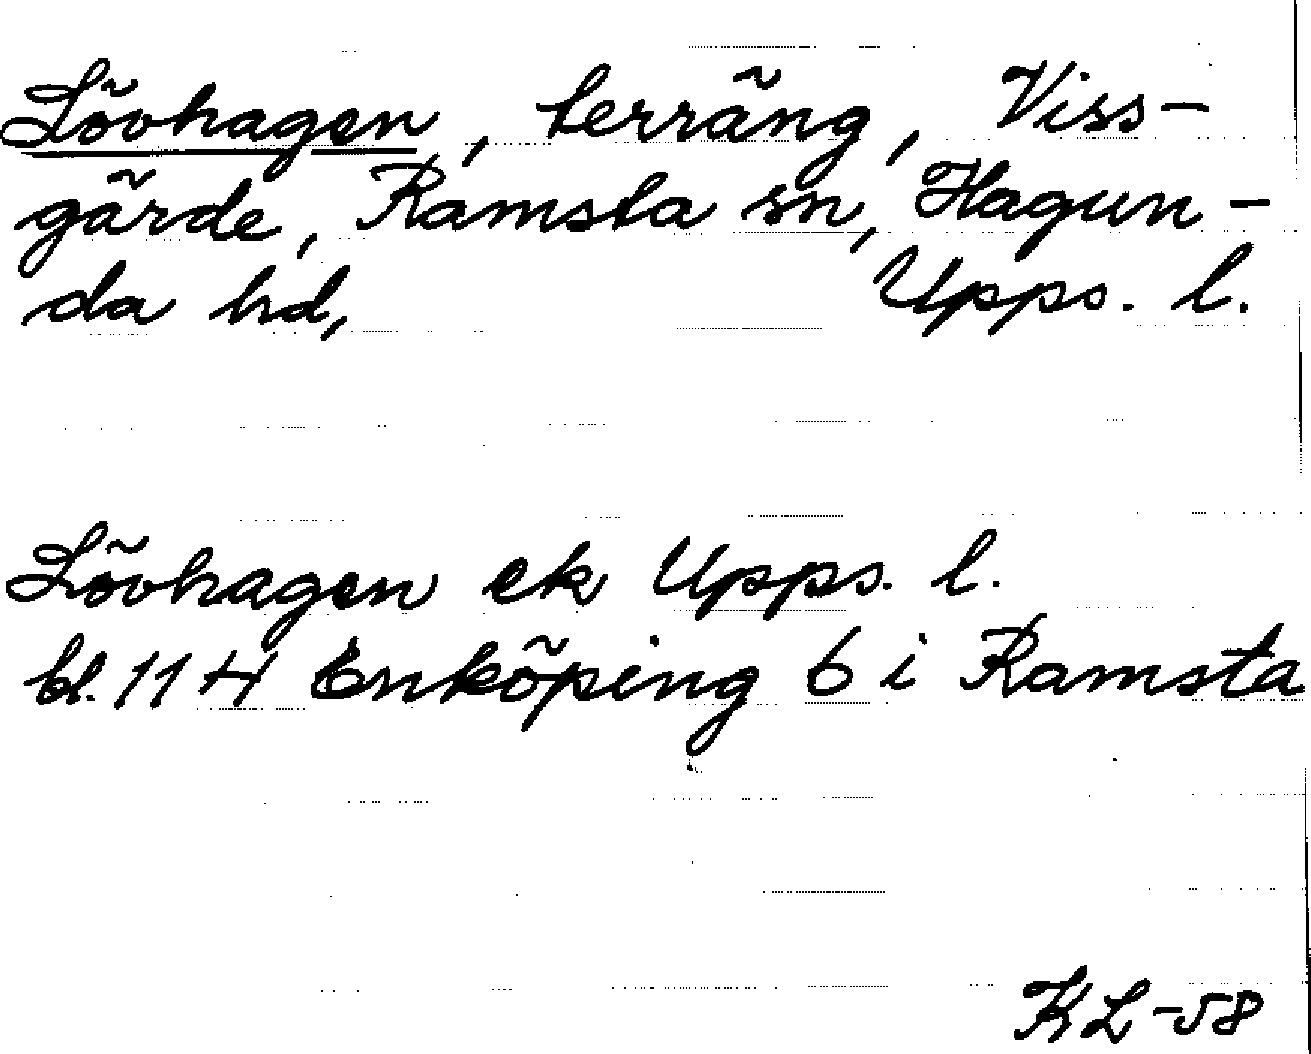 Lövhagen, terräng, Viss-
gärde, Ramsta sn, Hagun-
da hd, Upps. l.
Lövhagen ek Upps. l.
bl. 11 H Enköping 6 i Ramsta
KL-58